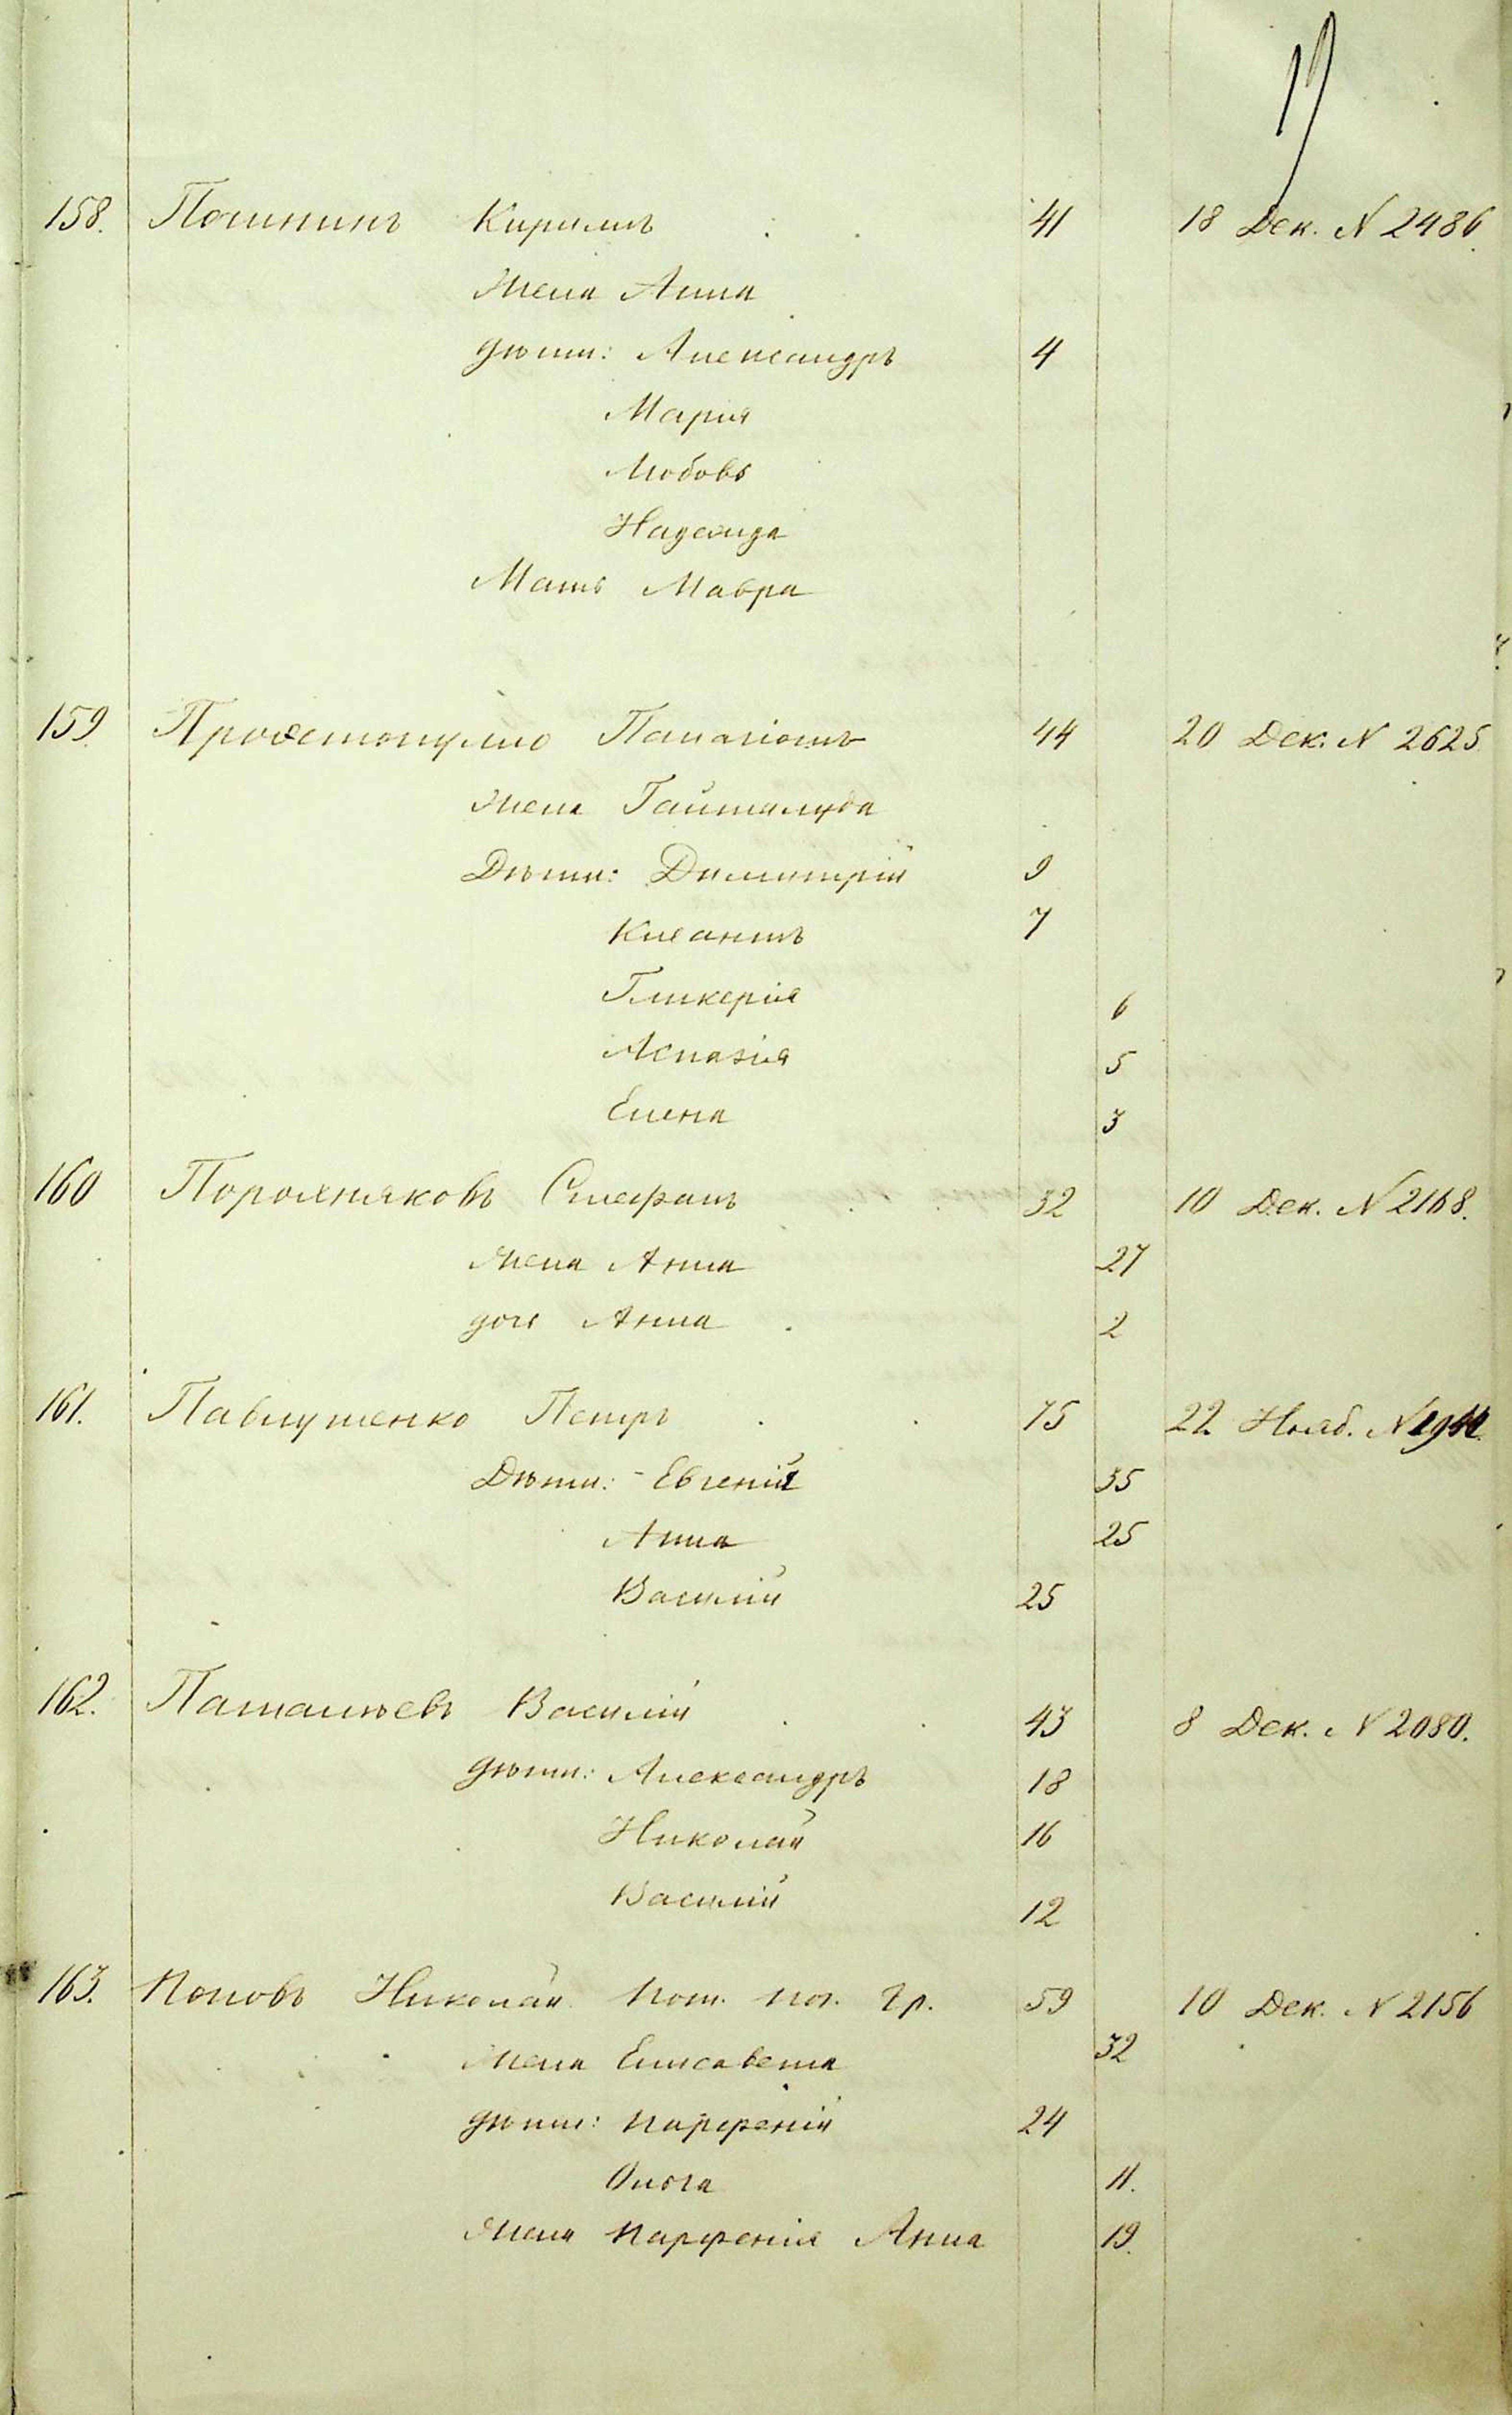 17
158. Пошнинъ Кирилъ 41 18 Дек. N 2486
Жена Анна
дѣти: Александръ 4
Мария
Любовь
Надежда
Мать Мавра
159. Панагіотъ 44 20 Дек. N 2625
Жена
Дѣти: Димитрій 9
Клеантъ 7
Гликерія 6
Аспазія 5
Елена 3
160 Порожняковъ Стефанъ 32 10 Дек. N 2168.
Жена Анна 27
дочь Анна 2
161. Павлутенко Петръ 75 22 Нояб. N
Дѣти: Евгенія 35
Анна 25
Василій 25
162. Паталѣевъ Василій 43 8 Дек. N 2080.
дѣти: Александръ 18
Николай 16
Василій 12
163. Поповъ Николай пот. поч. гр. 59 10 Дек. N 2156
Жена Елисавета 32
дѣти: Парфеній 24
Ольга 11.
Жена Парфенія Анна 19.